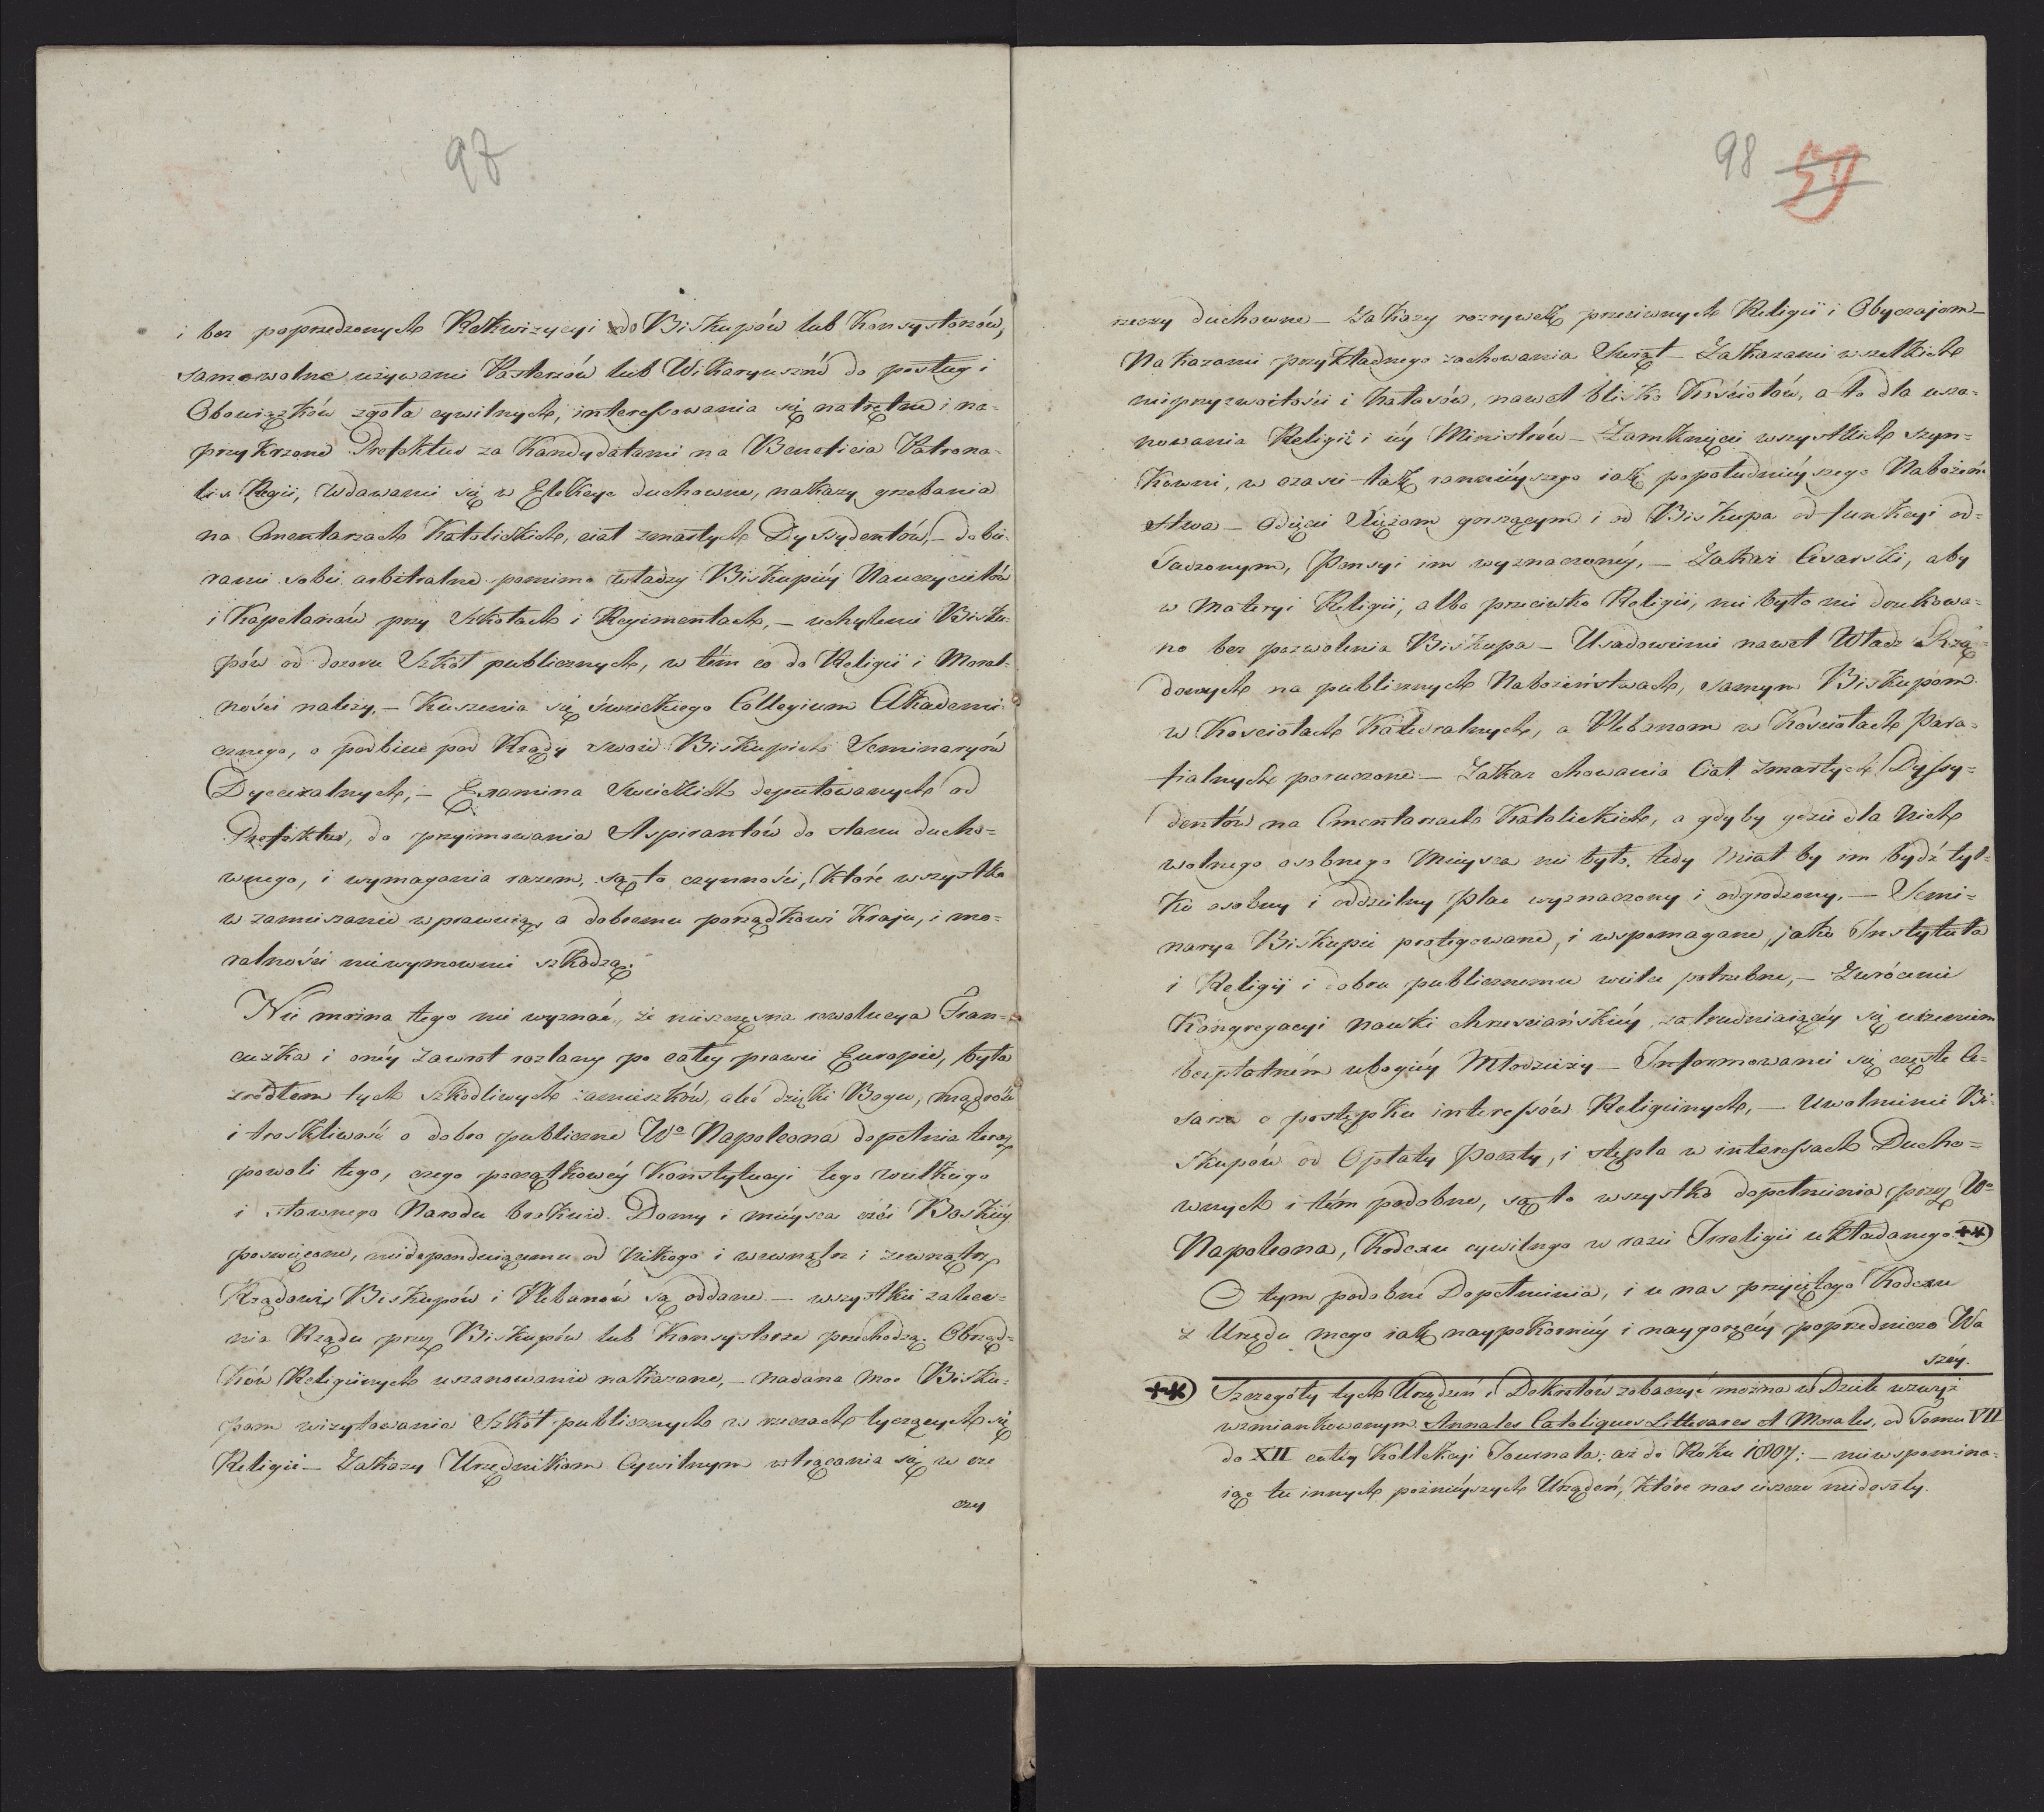 97
i bez poprzedzonych Rekwizycyi do Biskupów lub Konsystorzów,
samowolne używanie Pasterzów lub Wikaryuszów do posług i
Obowiązków zgoła cywilnych, interessowania się natrętne i na=
przykrzone Prefektur za Kandydatami na Beneficia Patrona=
tus Regii, wdawanie się w Elekcye duchowne, nakazy grzebania
na Cmentarzach Katolickich, ciał zmarłych Dyssydentów, – dobie=
ranie sobie arbitralne pomimo władzy Biskupiéy Nauczycielów
i Kapelanów przy Szkołach i Regimentach, – uchylenie Bisku=
pów od dozoru Szkół publicznych, w tém co do Religii i Moral=
ności należy. – Kuszenia się świeckiego Collegium Akademi=
cznego, o podbicie pod Rządy swoie Biskupich Seminaryów
Dyecezalnych, – Examina Swieckich deputowanych od
Prefektur, do przyimowania Aspirantów do stanu ducho=
wnego, i wymagania razem, są to czynności, które wszystko
w zamieszanie wprawuią, a dobremu porządkowi Kraju, i mo=
ralności niewymownie szkodzą.
Nie można tego nie wyznać, że nieszczęsna rewolucya Fran=
cuzka i onéy zawrot rozlany po całéy prawie Europie, była
zródłem tych szkodliwych zamieszków, aleć dzięki Bogu, mądrość
i troskliwość o dobro publiczne Wo Napoleona dopełnia teraz
powoli tego, czego początkowéy Konstytucyi tego wielkiego
i sławnego Narodu brakuie. Domy i mieysca czci Boskiéy
poswięcone, niedependuiącemu od nikogo i wewnątrz i zewnątrz
Rządowi Biskupów i Plebanów są oddane – wszystkie zalece=
nia Rządu przez Biskupów lub Konsystorze przechodzą. Obrząd=
ków Religiinych uszanowanie nakazane, – nadana moc Bisku=
pom wizytowania Szkół publicznych w rzeczach tyczących się
Religii – Zakazy Urzędnikom Cywilnym wtrącania się w rze
czy
98 59
rzeczy duchowne – Zakazy rozrywek przeciwnych Religii i Obyczajom –
Nakazanie przykładnego zachowania Swiąt – Zakazanie wszelkich
nieprzyzwoitości i hałasów, nawet blisko Kościołów, a to dla usza=
nowania Religii i iéy Ministrów – Zamknięcie wszystkich szyn=
kowni, w czasie tak rannieyszego iak popołudnieyszego Nabożeń
stwa – Odięcie Xiężom gorszącym i od Biskupa od funkcyi od=
sadzonym, Pensyi im wyznaczonéy, – Zakaz Cesarski, aby
w Materyi Religii, albo przeciwko Religii, nie było nic drukowa=
no bez pozwolenia Biskupa – Usadowienie nawet Władz Rzą=
dowych na publicznych Nabożeństwach, samym Biskupom
w Kościołach Katedralnych, a Plebanom w Kościołach Para=
fialnych poruczone – Zakaz chowania Ciał zmarłych Dyssy=
dentów na Cmentarzach Katolickich, a gdyby gdzie dla nich
wolnego osobnego Mieysca nie było, tedy miał by im bydź tyl=
ko osobny i oddzielny Plac wyznaczony i odgrodzony, – Semi=
narya Biskupie protegowane, i wspomagane, jako Instytuta
i Religii i dobru publicznemu wielce potrzebne, – Zwrócenie
Kongregacyi nauki chrzesciańskiéy, zatrudniaiącéy się uczeniem
bezpłatném ubogiéy Młodzieży – Informowanie się częste Ce=
sarza o postępku interessów Religiinych, – Uwolnienie Bi=
skupów od Opłaty Poczty, i stępla w interessach Ducho=
wnych i tém podobne, są to wszystko dopełnienia przez Wo
Napoleona, Kodexu cywilnego w razie Irreligii układanego. ++)
O tym podobne Dopełnienia, i u nas przyiętego Kodexu
z Urzędu mego iak naypokorniéy i naygoręcéy poprzedniczo Wa
széy.
++) Szczegóły tych Urządzeń i Dekretów zobaczyć można w Dziele wzwyż
wzmiankowanym. Annales Catoliques Litterares et Morales, od Tomu VII
do XII całéy Kollekcyi Journala; aż do Roku 1807; – niewspomina=
iąc tu innych poźnieyszych Urządzeń, które nas ieszcze niedoszły.